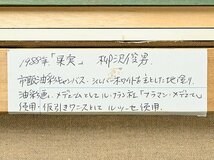 1988年「果実」 柳沢俊男
市販油彩キャンバス・シルバーホワイトを主とした地塗り、
油彩画、メデュームとしてルフラン社「フラマン・メデューム」
使用・仮引きワニスとしてルツーセ使用.